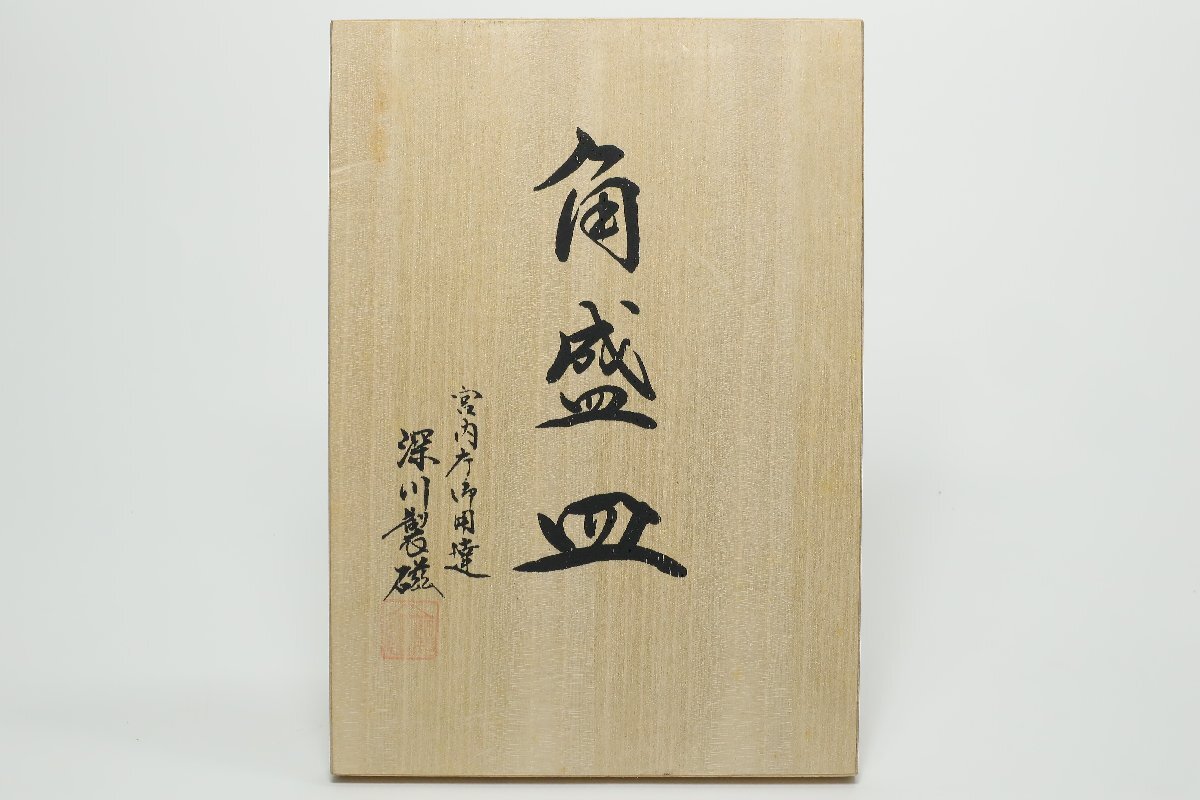 角盛皿
宮内庁御用達
深川製磁